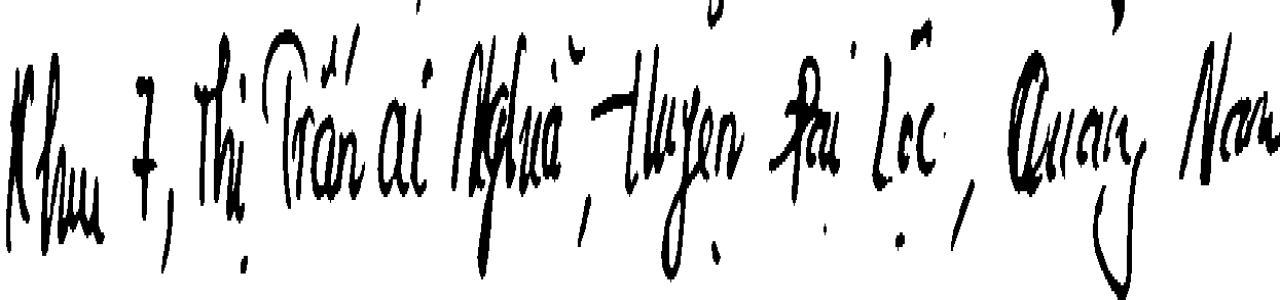 Khu 7, Thị Trấn Ái Nghĩa, Huyện Đại Lộc, Quảng Nam